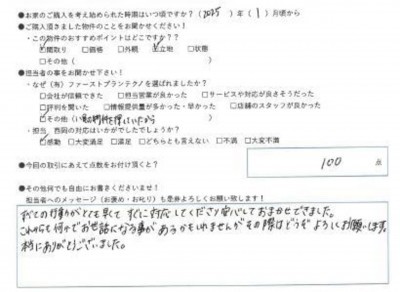 ●お家のご購入を考え始められた時期はいつ頃ですか？（2025）年（1）月頃から
●ご購入頂きました物件のことをお聞かせください！
・この物件のおすすめポイントはどこですか？？
☑間取り □価格 □外観 ☑立地 □状態
□その他（　　　）
●担当者の事をお聞かせ下さい！
・なぜ（有）ファーストプランテクノを選ばれましたか？
□会社が信頼できた □担当営業が良かった □サービスや対応が良さそうだった
□評判を聞いた □情報提供量が多かった・早かった □店舗のスタッフが良かった
☑その他（いい物件を探していたから
・担当 西岡の対応はいかがでしたでしょうか？
☑感動 □大変満足 □満足 □どちらとも言えない □不満 □大変不満
●今回の取引にあえて点数をお付け頂くと？
100 点
●その他何でも自由にお書きくださいませ！
担当者へのメッセージ（お褒め・お叱り）も是非よろしくお願い致します！
すべての行動がとても早くて すぐに対応してくださり安心しておまかせできました。
これからも何かでお世話になる事があるかもしれませんがその際はどうぞよろしくお願いします。
本当にありがとうございました。